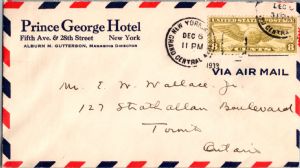 Prince George Hotel
Fifth Ave. & 28th Street New York
Alburn M. Gutterson, Managing Director
NEW YORK
GRAND CENTRAL
DEC 5
11 PM
1933
UNITED STATES POSTAGE
8 CENTS 8
VIA AIR MAIL
Mr. E. W. Wallace, Jr.
127 Strathallan Boulevard
Toronto
Ontario